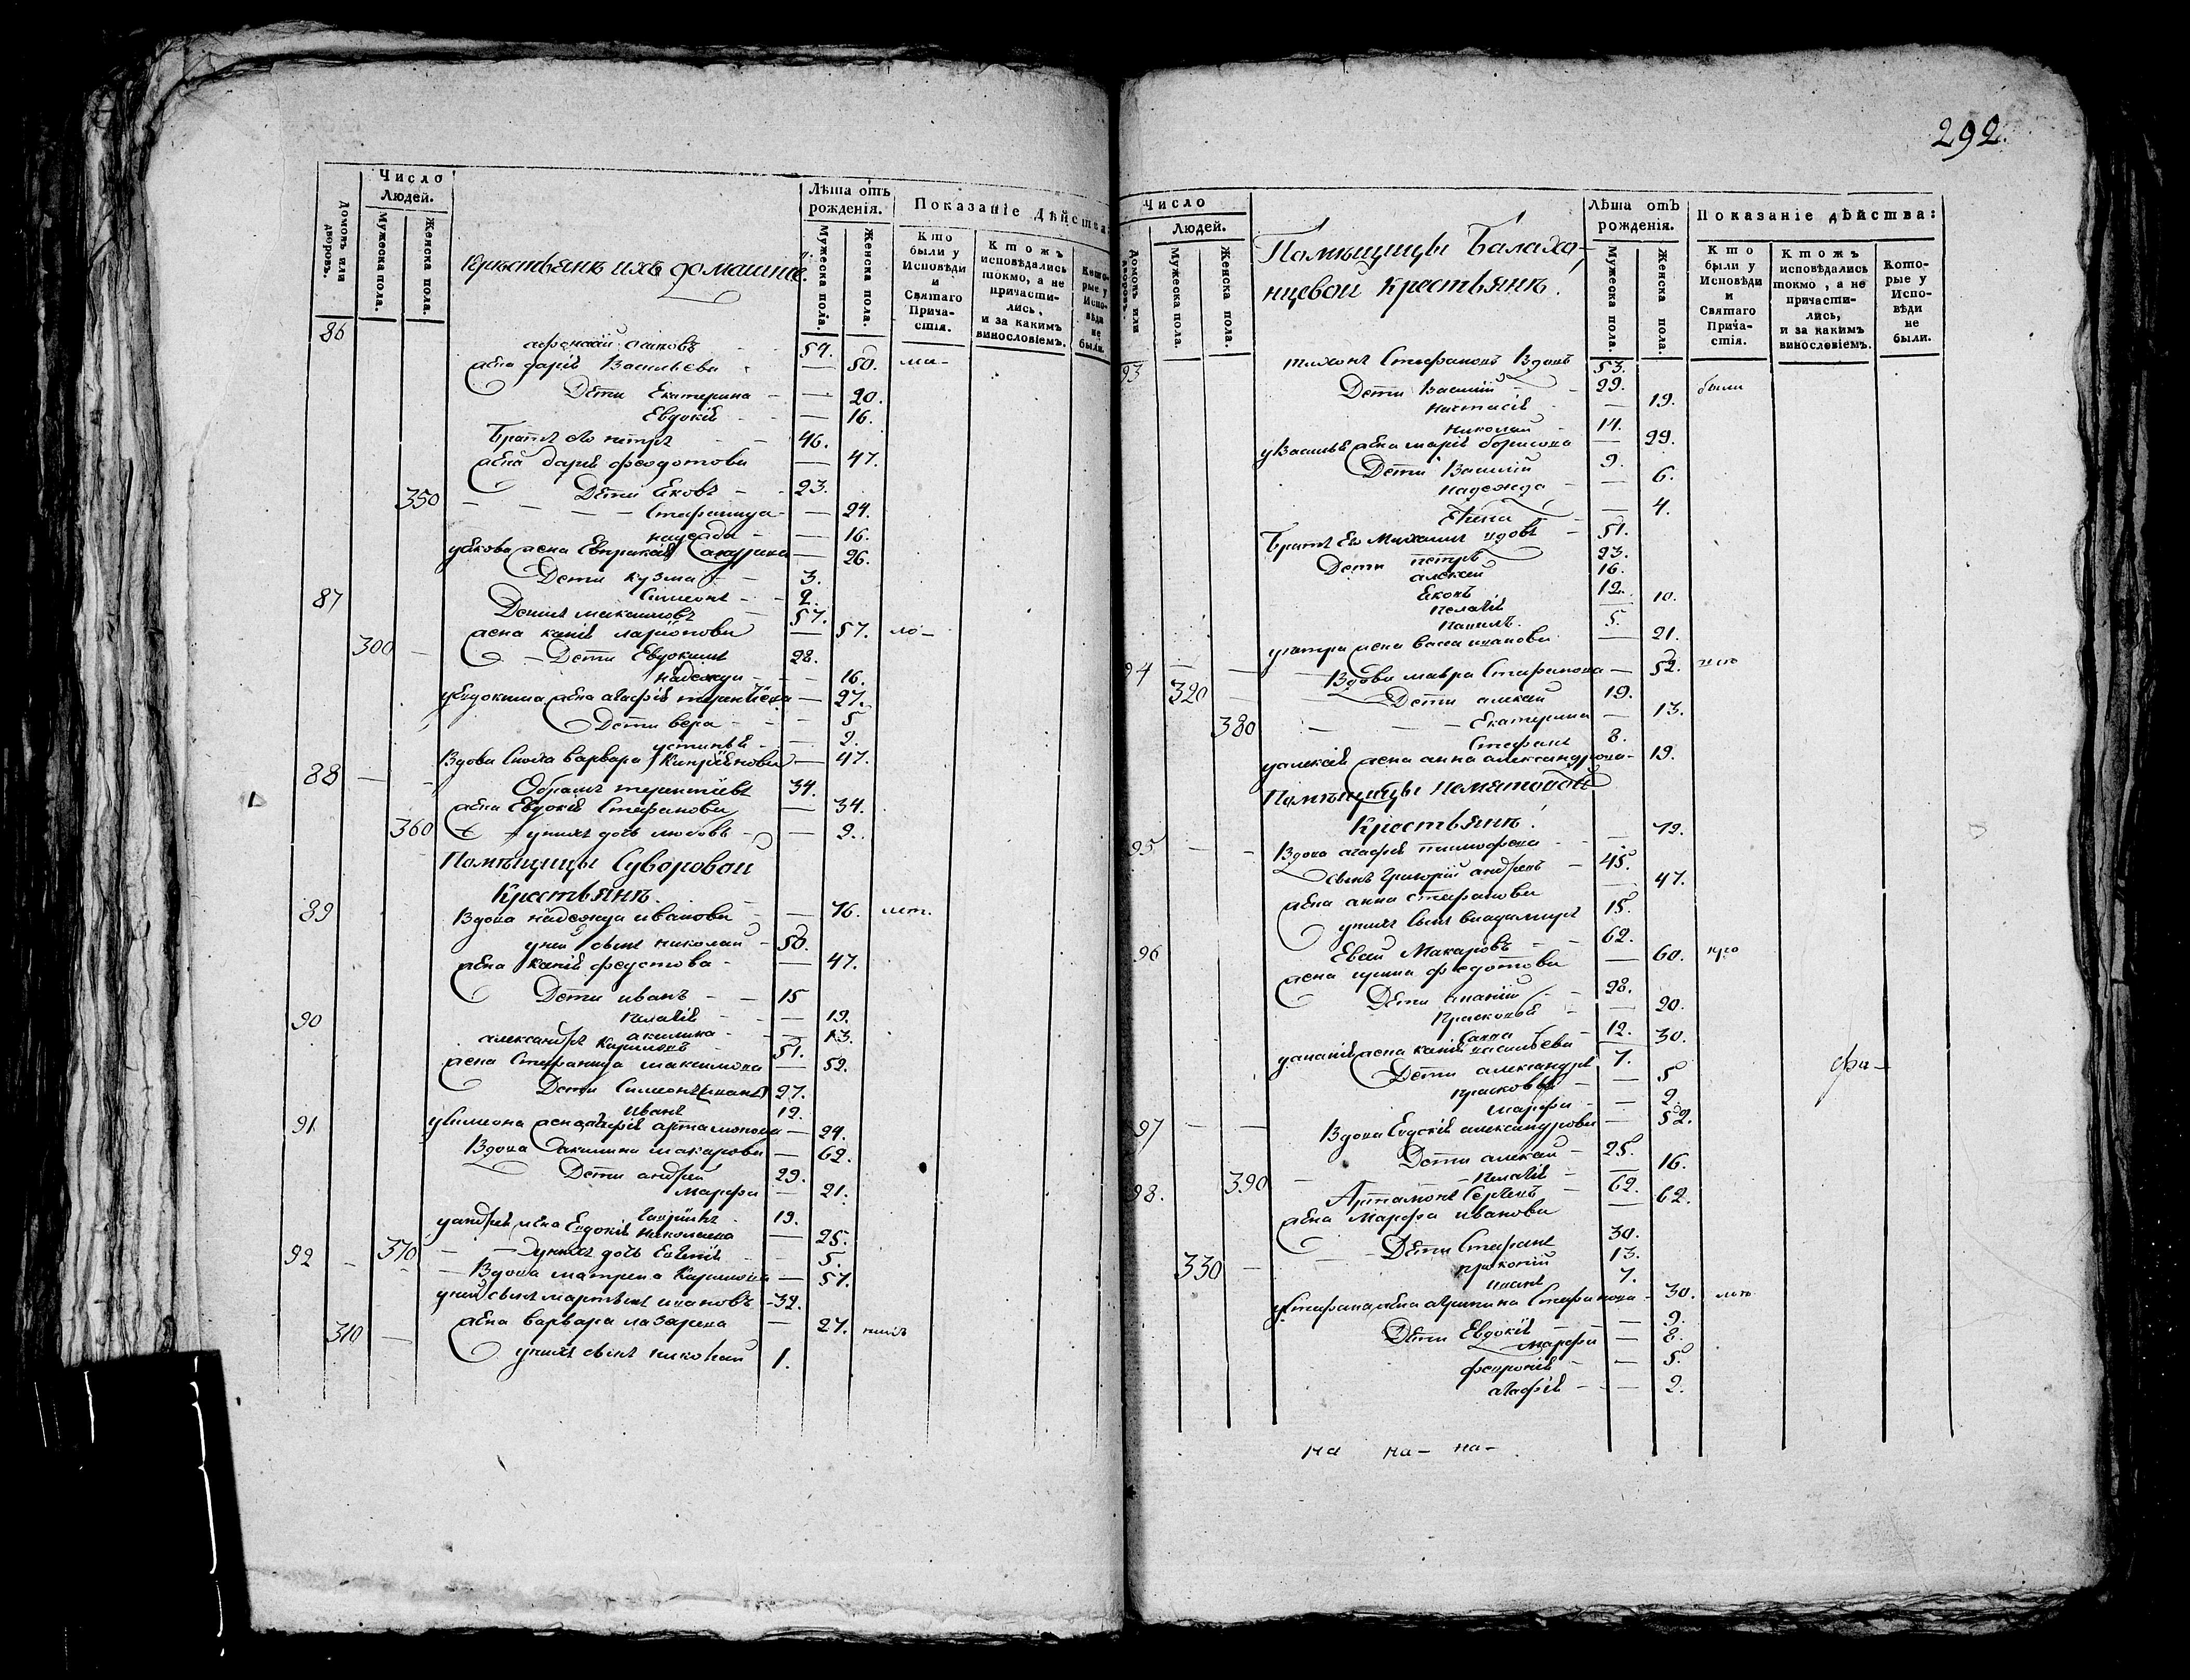 292.
Число Людей.
Лѣта отъ рожденія.
Показаніе дѣйства:
Домовъ или дворовъ.
Мужеска пола.
Женска пола.
Крестьянъ ихъ домашние.
Мужеска пола.
Женска пола.
Кто были у Исповѣди и Святаго Причастія.
Кто жъ исповѣдались токмо, а не причастились, и за какимъ винословіемъ.
Которые у Исповѣди не были.
86
жена дарія Васильева — 50.
Дети Екатерина — 20.
Евдокія — 16.
Братъ его петръ 46.
жена дарія федотова — 47.
Дети Яковъ 23.
350 Стефанида — 24.
16.
у Якова жена — 26.
Дети кузма 3.
Симеонъ 2.
87 максимовъ 57.
жена ларионова — 57.
300 Дети Евдокимъ 28.
надежда — 16.
у Евдокима жена агафія терентіева — 27.
Дети вера — 5
устинья — 2.
Вдова варвара — 47.
88 терентіевъ 34.
жена Евдокія Стефанова — 34.
360 у нихъ дочь любовь — 2.
Помѣщицы Суворовои
Крестьянъ.
89 Вдова надежда иванова — 76.
у неи сынъ николаи 50.
жена федотова — 47.
Дети иванъ 15
пелагія — 19.
акилина — 13.
90 александръ 51.
жена Стефанида максимова — 52.
Дети Симеонъ 27.
иванъ 12.
у Симеона жена артамонова — 24.
91 Вдова акилина макарова — 62.
Дети андреи 29.
марфа — 21.
19.
у андрея жена Евдокія николаева — 25.
370 у нихъ дочь Евгенія — 5.
92 Вдова матрена — 57.
у неи сынъ ивановъ 32.
жена варвара лазарева — 27.
310 у нихъ сынъ 1.
Число Людей.
Лѣта отъ рожденія.
Показаніе дѣйства:
Домовъ или дворовъ.
Мужеска пола.
Женска пола.
Помѣщицы Балахо-
нцевои крестьянъ.
Мужеска пола.
Женска пола.
Кто были у Исповѣди и Святаго Причастія.
Кто жъ исповѣдались токмо, а не причастились, и за какимъ винословіемъ.
Которые у Исповѣди не были.
93 тихонъ Стефановъ Вдовъ 53. были
Дети Василіи 29.
настасія — 19.
николаи 14.
у Василья жена марія борисова — 29.
Дети Василіи 9.
надежда — 6.
Елена — 4.
Братъ Его Михаилъ вдовъ 51.
Дети петръ 23.
алексѣи 16.
Яковъ 12.
пелагія — 10.
5.
у петра жена иванова — 21.
94 Вдова мавра Стефанова — 52.
320 Дети алексеи 19.
380 Екатерина — 13.
Стефанъ 8.
у алексія жена анна александрова — 19.
Помѣщицы
Крестьянъ.
95 Вдова агафія тимофеева — 72.
сынъ григоріи андреевъ 45.
жена анна стефанова — 47.
у нихъ сынъ владимиръ 15.
96 Макаровъ 62.
жена ирина федотова — 60.
Дети ананіи 28.
Прасковья — 20.
12.
у ананія жена васильева — 30.
Дети александръ 7.
прасковья — 5
марфа — 2.
97 Вдова Евдокія александрова — 52.
Дети алексеи 25.
390 пелагія — 16.
98. Артамонъ 62.
жена Марфа иванова — 62.
Дети Стефанъ 30.
330 прокопіи 13.
иванъ 7.
у Стефана жена Стефанова — 30.
Дети Евдокія — 9.
марфа — 8.
февронія — 5.
агафія — 2.
на на— на—